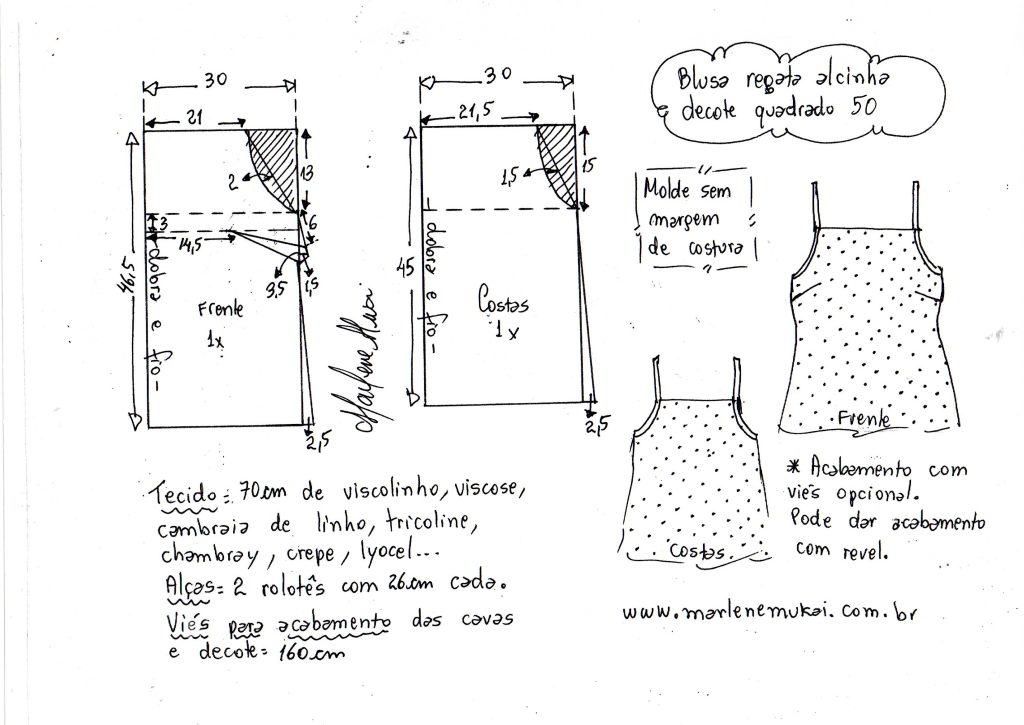 Blusa regata alcinha
e decote quadrado 50
Molde sem
margem
de costura
30
21
13
2
6
3
14,5
3,5
1,5
46,5
dobra e fio
Frente
1x
2,5
Marlene Mukai
30
21,5
15
1,5
45
dobra e fio
Costas
1x
2,5
Frente
Costas
* Acabamento com
viés opcional.
Pode dar acabamento
com revel.
Tecido = 70cm de viscolinho, viscose,
cambraia de linho, tricoline,
chambray, crepe, lyocel...
Alças = 2 rolotês com 26cm cada.
Viés para acabamento das cavas
e decote = 160cm
www.marlenemukai.com.br